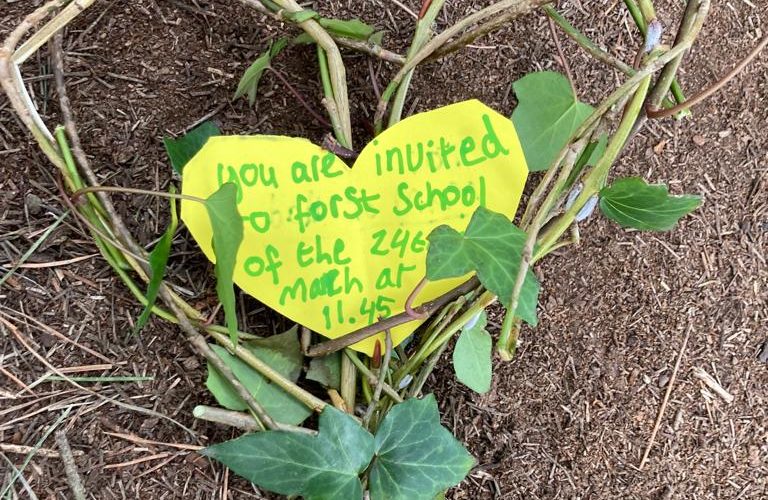 you are invited
to forst School
of the 24
March at
11.45